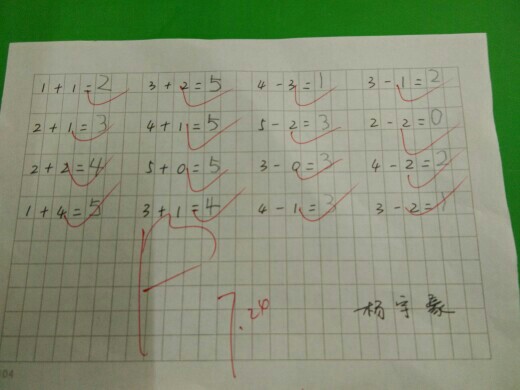 1 + 1 = 2 3 + 2 = 5 4 - 3 = 1 3 - 1 = 2
2 + 1 = 3 4 + 1 = 5 5 - 2 = 3 2 - 2 = 0
2 + 2 = 4 5 + 0 = 5 3 - 0 = 3 4 - 2 = 2
1 + 4 = 5 3 + 1 = 4 4 - 1 = 3 3 - 2 = 1
7.24
杨宇豪
04